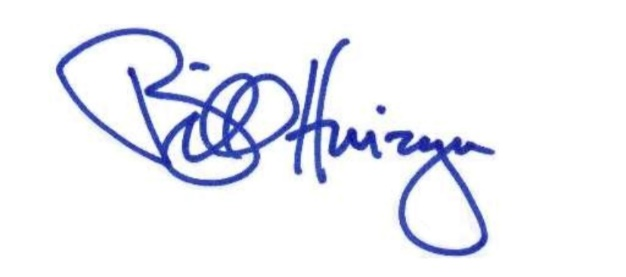 Bill Huizenga